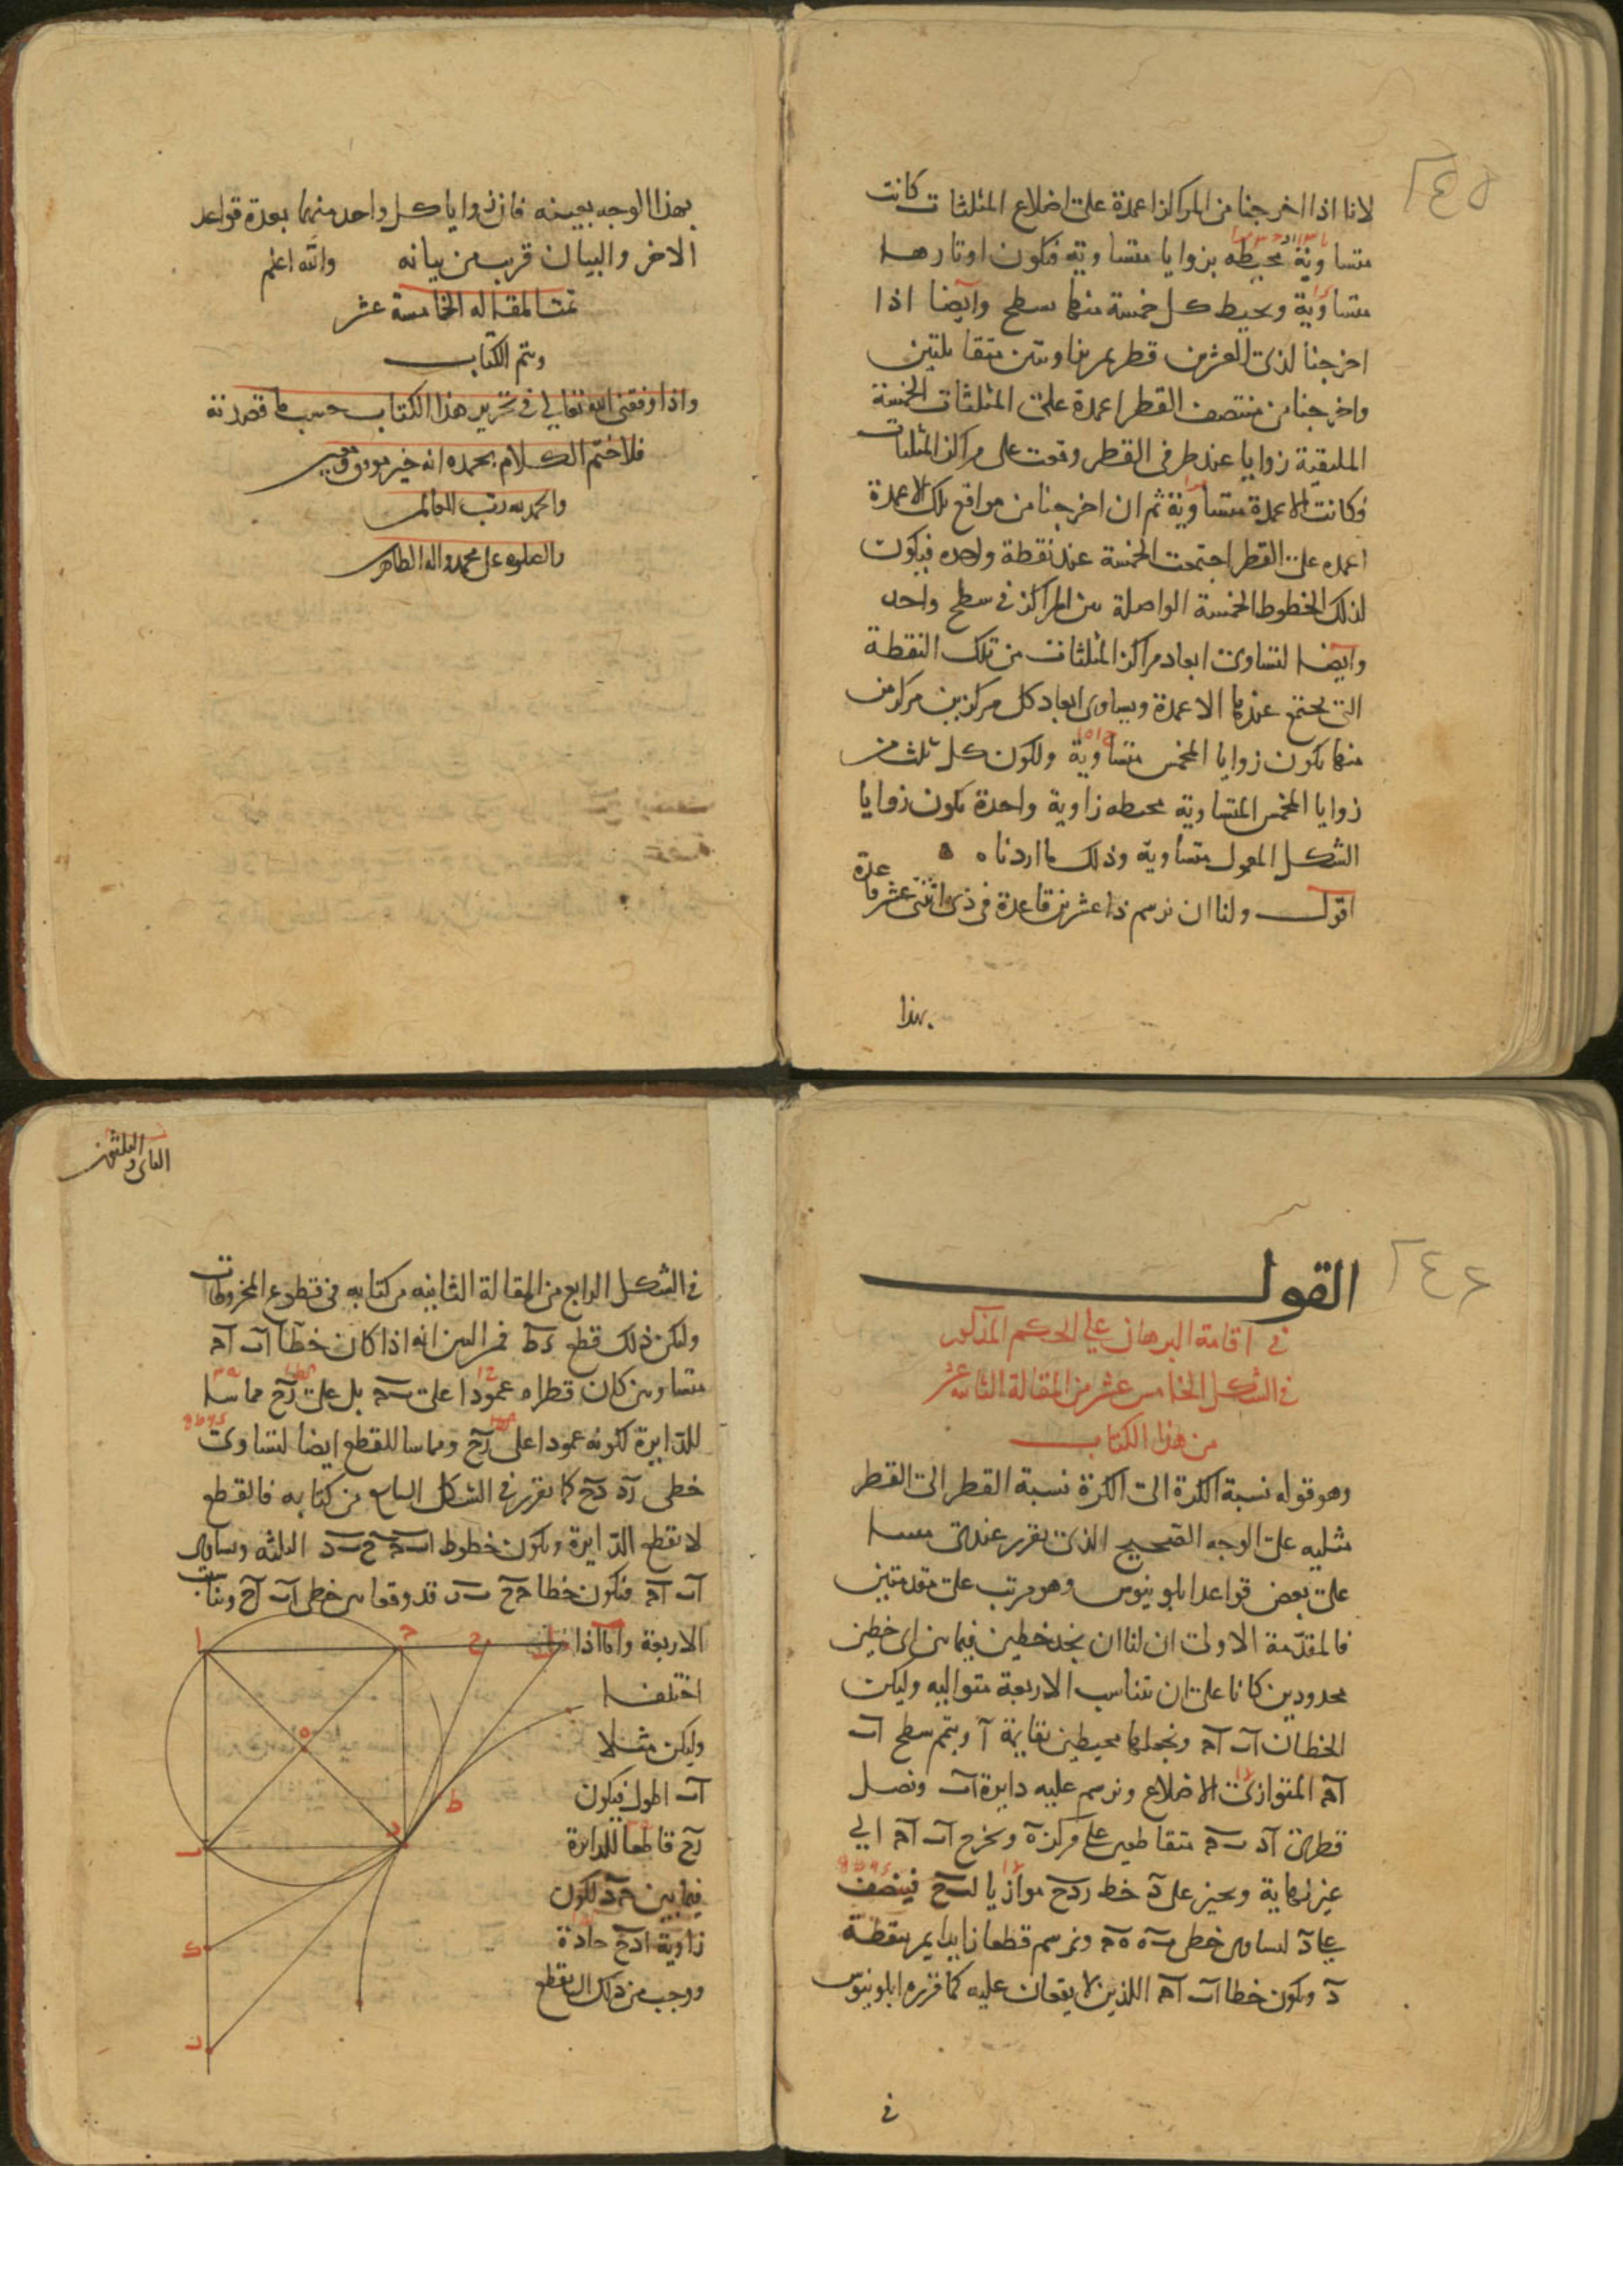 لانا اذا اخرجنا من المراكز اعمدة على اضلاع المثلثات كانت
متساوية محيطه بزوايا متساوية فتكون اوتارها
متساوية ويحيط كل خمسة منها سطح وايضا اذا
اخرجنا لذى العشرين قطر يمر بزاويتين متقابلتين
واخرجنا من منتصف القطر اعمدة على المثلثات الخمسة
الملتقية زوايا عند طرفى القطر وقعت على مراكز المثلثات
وكانت الاعمدة متساوية ثم ان اخرجنا من مواقع تلك الاعمدة
اعمده على القطر اجتمعت الخمسة عند نقطة واحده فيكون
لذلك الخطوط الخمسة الواصلة بين المراكز فى سطح واحد
وايضا لتساوى ابعاد مراكز المثلثات من تلك النقطة
التى يجتمع عندها الاعمدة وتساوى ابعاد كل مركزين مركزين
منها يكون زوايا المخمس متساوية ولكون كل ثلث من
زوايا المخمس المتساوية محيطه زاوية واحدة يكون زوايا
الشكل المعمول متساوية وذلك ما اردناه
اقول ولنا ان نرسم ذا عشرين قاعدة فى ذى اثنتى عشر قاعدة
بهذا
بهذا الوجه بعينه فان زوايا كل واحد منهما بعدة قواعد
الاخر والبيان قريب من بيانه والله اعلم
تمت المقاله الخامسة عشر
وتم الكتاب
واذا وفقنى الله تعالى فى تحرير هذا الكتاب حسب ما قصدته
فلاختم الكلام بحمده انه خير موفق ومعين
والحمد لله رب العالمين
والصلوه على محمد واله الطاهرين
٢٤٥
٢٤٦
القول
فى اقامة البرهان على الحكم المذكور
فى الشكل الخامس عشر من المقالة الثانيه عشر
من هذا الكتاب
وهو قوله نسبة الكرة الى الكرة نسبة القطر الى القطر
مثلثه على الوجه الصحيح الذى تقرر عندى مبنيا
على بعض قواعد ابلونيوس وهو مرتب على مقدمتين
فالمقدمة الاولى ان لنا ان نجد خطين فيما بين اى خطين
محدودين كانا على ان تتناسب الاربعة متواليه وليكن
الخطان اب اج ونجعلهما محيطين بقايمة ا ويتم سطح اب
اج المتوازى الاضلاع ونرسم عليه دايرة اب ونصل
قطرى اد ب ج متقاطعين على مركز ه ونخرج اب اج الى
غير نهاية ونجيز على د خط ردح موازيا لب ج فينصف
على د لتساوى خطى ب ه ه ج ونرسم قطعا زايدا يمر بنقطة
د ويكون خطا اب اج اللذين لا يقعان عليه كما قرره ابلونيوس
فى
الثانى والثلثون
فى الشكل الرابع من المقالة الثانيه من كتابه فى قطوع المخروطات
وليكن ذلك قطع دط فمن البين انه اذا كان خطا اب اج
متساويين كان قطر اه عمودا على ب ج بل على رح مماسا
للدايرة لكونه عمودا على رح ومماسا للقطع ايضا لتساوى
خطى رد دح كما تقرر فى الشكل السابع من كتابه فالقطع
لا يقطع الدايرة ويكون خطوط اب ج ح ب د الثلثه وتساوى
اب اج فتكون خطا ج ح ب ر قد وقعا بين خطى اب اج وتناسب
الاربعة واما اذا
اختلفا
وليكن مثلا
اب اطول فيكون
رح قاطعا للدايرة
فيما بين ج د لكون
زاوية ادح حادة
ووجب من ذلك ان يقطع
ا
ج
ح
ه
ط
د
ب
ك
ر